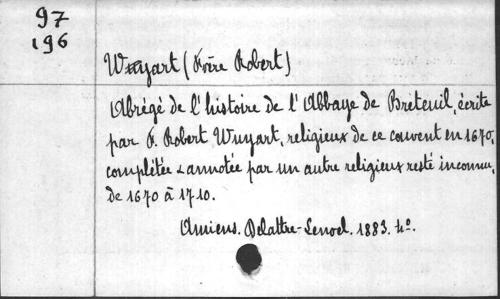 97
196
Wuyart (Frère Robert)
Abrégé de l'histoire de l'Abbaye de Breteuil, écrite
par F. Robert Wuyart, religieux de ce couvent en 1670,
complétée & annotée par un autre religieux resté inconnu,
de 1670 à 1710.
Amiens. Delattre-Lenoel. 1883. 4º.